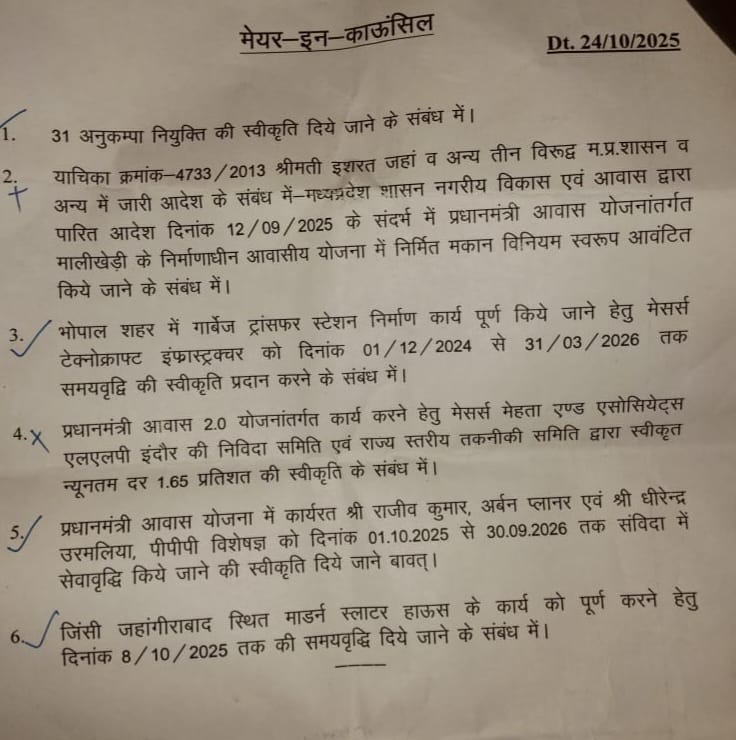 मेयर–इन–काऊंसिल
Dt. 24/10/2025
1. 31 अनुकम्पा नियुक्ति की स्वीकृति दिये जाने के संबंध में।
2. याचिका क्रमांक–4733/2013 श्रीमती इशरत जहां व अन्य तीन विरूद्व म.प्र.शासन व
अन्य में जारी आदेश के संबंध में–मध्यप्रदेश शासन नगरीय विकास एवं आवास द्वारा
पारित आदेश दिनांक 12/09/2025 के संदर्भ में प्रधानमंत्री आवास योजनांतर्गत
मालीखेड़ी के निर्माणाधीन आवासीय योजना में निर्मित मकान विनियम स्वरूप आवंटित
किये जाने के संबंध में।
3. भोपाल शहर में गार्बेज ट्रांसफर स्टेशन निर्माण कार्य पूर्ण किये जाने हेतु मेसर्स
टेक्नोक्राफ्ट इंफ्रास्ट्रक्चर को दिनांक 01/12/2024 से 31/03/2026 तक
समयवृद्वि की स्वीकृति प्रदान करने के संबंध में।
4. प्रधानमंत्री आवास 2.0 योजनांतर्गत कार्य करने हेतु मेसर्स मेहता एण्ड एसोसियेट्स
एलएलपी इंदौर की निविदा समिति एवं राज्य स्तरीय तकनीकी समिति द्वारा स्वीकृत
न्यूनतम दर 1.65 प्रतिशत की स्वीकृति के संबंध में।
5. प्रधानमंत्री आवास योजना में कार्यरत श्री राजीव कुमार, अर्बन प्लानर एवं श्री धीरेन्द्र
उरमलिया, पीपीपी विशेषज्ञ को दिनांक 01.10.2025 से 30.09.2026 तक संविदा में
सेवावृद्धि किये जाने की स्वीकृति दिये जाने बावत्।
6. जिंसी जहांगीराबाद स्थित माडर्न स्लाटर हाऊस के कार्य को पूर्ण करने हेतु
दिनांक 8/10/2025 तक की समयवृद्वि दिये जाने के संबंध में।